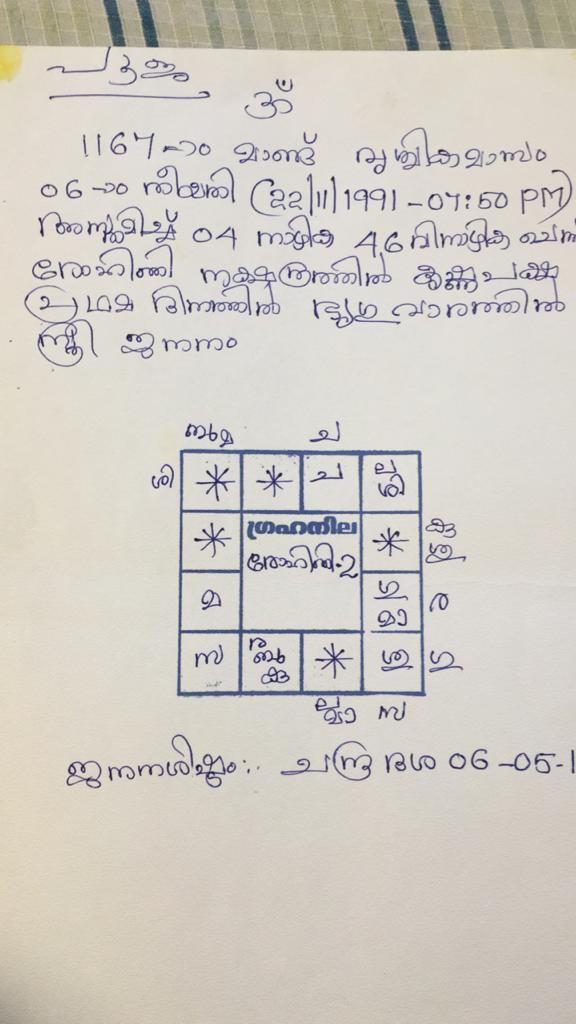 പൂജ
ഓം
1167-ാം മാണ്ട് വൃശ്ചികമാസം
06-ാം തീയതി (22/11/1991-07:50 PM)
അസ്തമിച്ച് 04 നാഴിക 46 വിനാഴിക ചെന്ന
രോഹിണി നക്ഷത്രത്തിൽ കൃഷ്ണപക്ഷ
പ്രഥമ ദിനത്തിൽ ഭൃഗുവാരത്തിൽ
സ്ത്രീ ജനനം
ബുമ ച
ശി * * ച ല ശി
* ഗ്രഹനില * കു ശു
രോഹിണി-2
മ ഗു മാ ര
സ ര ബു കു * ശു ഗു
ല മാ സ
ജനനശിഷ്ടം:. ചന്ദ്ര ദശ 06-05-1